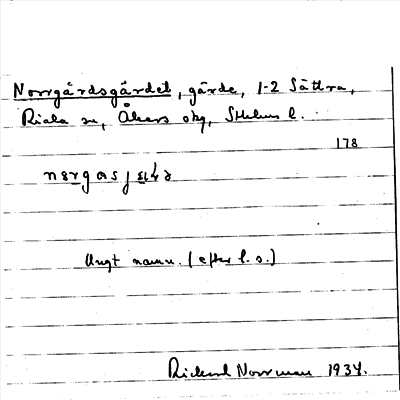 Norrgårdsgärdet, gärde, 1-2 Sättra,
Riala sn, Åkers skg, Sthlms l.
178
Ungt namn. (efter l. s.)
Rickard Norrman 1934.